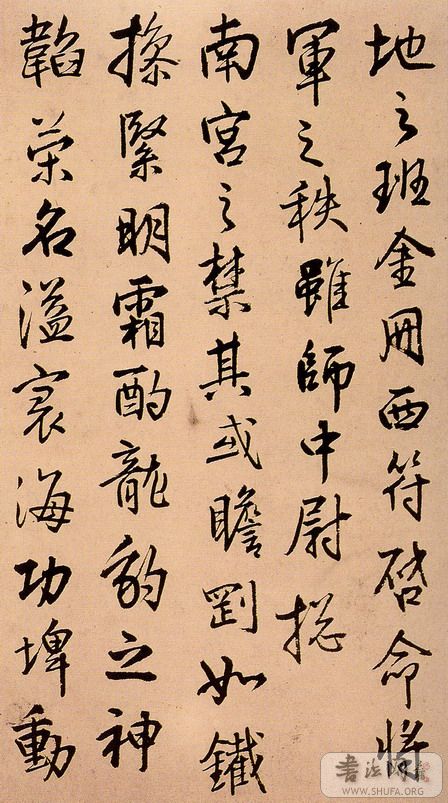 地之班金冊西符啓命將
軍之秩雖師中尉揔
南宮之禁其或瞻剛如鐵
操緊明霜酌龍豹之神
韜榮名溢寰海功埤動
书法网
WWW.SHUFA.ORG